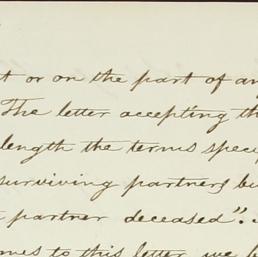 t or on the part of an
The letter accepting th
length the terms spec
surviving partners bu
partner deceased".
mes to this letter we h